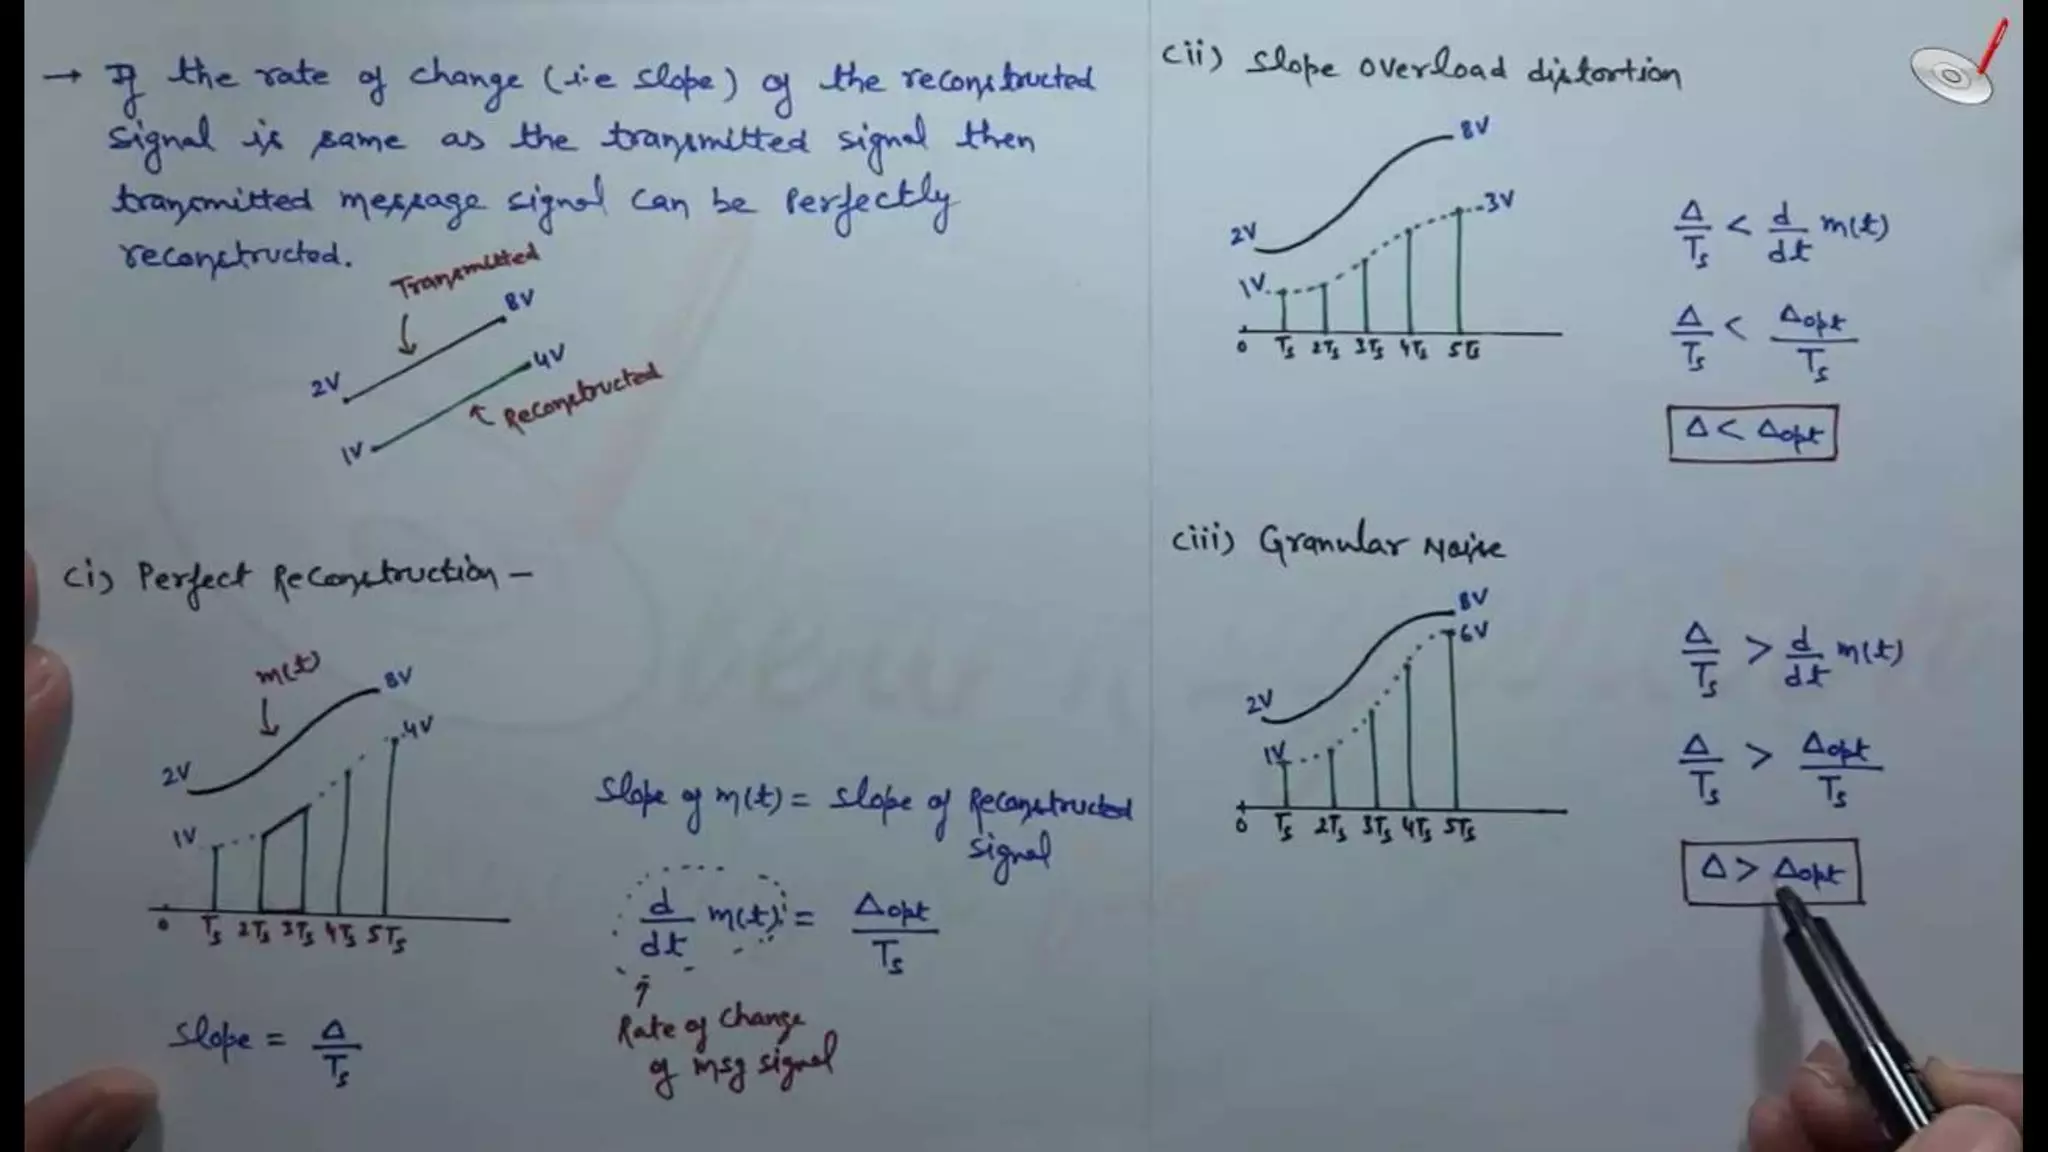 → If the rate of change (i.e slope) of the reconstructed
signal is same as the transmitted signal then
transmitted message signal can be perfectly
reconstructed.
Transmitted
8V
2V
4V
1V
Reconstructed
(i) Perfect Reconstruction -
m(t)
8V
4V
2V
1V
0 Ts 2Ts 3Ts 4Ts 5Ts
Slope = Δ/Ts
Slope of m(t) = Slope of Reconstructed
signal
d/dt m(t) = Δopt/Ts
Rate of Change
of msg signal
(ii) Slope overload distortion
8V
3V
2V
1V
0 Ts 2Ts 3Ts 4Ts 5Ts
Δ/Ts < d/dt m(t)
Δ/Ts < Δopt/Ts
Δ < Δopt
(iii) Granular Noise
8V
6V
2V
1V
0 Ts 2Ts 3Ts 4Ts 5Ts
Δ/Ts > d/dt m(t)
Δ/Ts > Δopt/Ts
Δ > Δopt